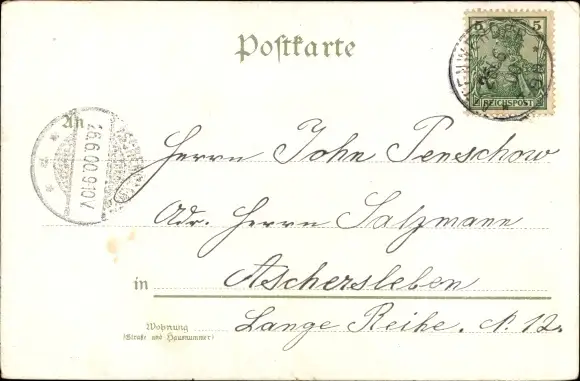 Postkarte
5 5
REICHSPOST
An
26.6.00.9-10V
Herrn John Penschow
Adr. Herrn Salzmann
in Aschersleben
Wohnung
(Straße und Hausnummer)
Lange Reihe. N. 12.